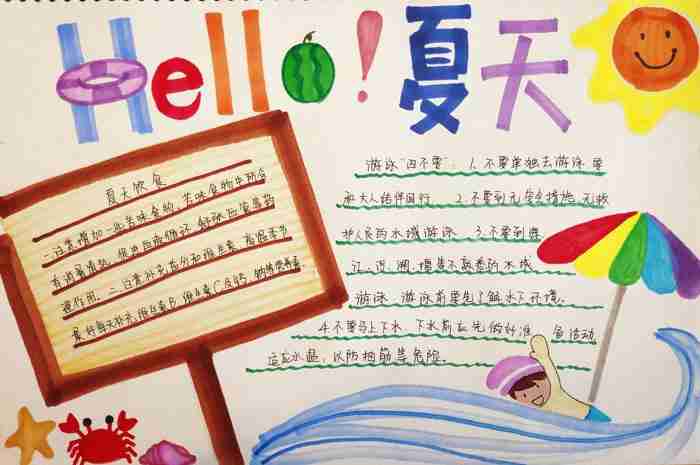 Hello!夏天
夏天饮食
一.注意增加一些苦味食物,苦味食物中所含
有消暑清热,促进血液循环,舒张血管等药
理作用.二.注意补充盐分和维生素,高温季节
最好每天补充维生素B、维生素C及钙
游泳"四不要":1.不要单独去游泳要
和大人结伴同行 2.不要到无安全措施,无救
护人员的水域游泳 3.不要到
江、河、湖、塘等不熟悉的水域
游泳,游泳前要先了解水下环境.
4.不要马上下水,下水前先做好准备活动
适应水温,以防抽筋等危险.